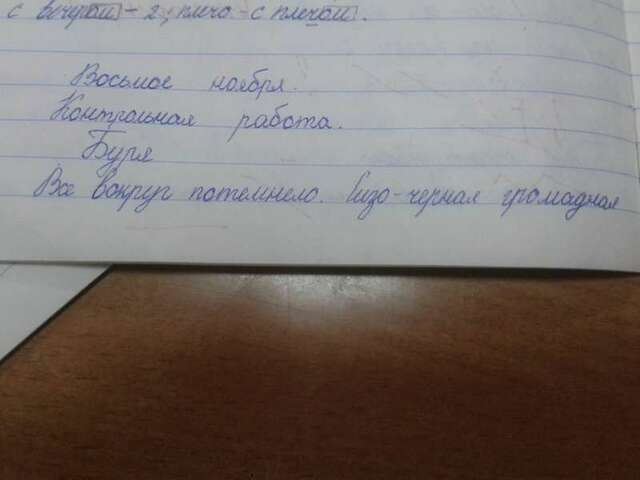 с вечером - 2, плечо - с плечом.
Восьмое ноября.
Контрольная работа.
Буря
Все вокруг потемнело. Сизо-черная громадная